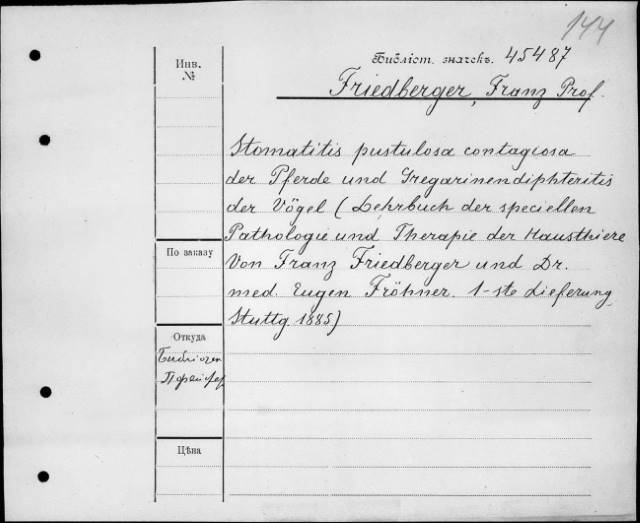 144
Библіот. значекъ. 45487
Инв.
№
Friedberger, Franz Prof.
Stomatitis pustulosa contagiosa
der Pferde und Gregarinendiphteritis
der Vögel (Lehrbuch der speciellen
Pathologie und Therapie der Hausthiere
Von Franz Friedberger und Dr.
med. Eugen Fröhner. 1-ste Lieferung
Stuttg. 1885)
По заказу
Откуда
Цѣна